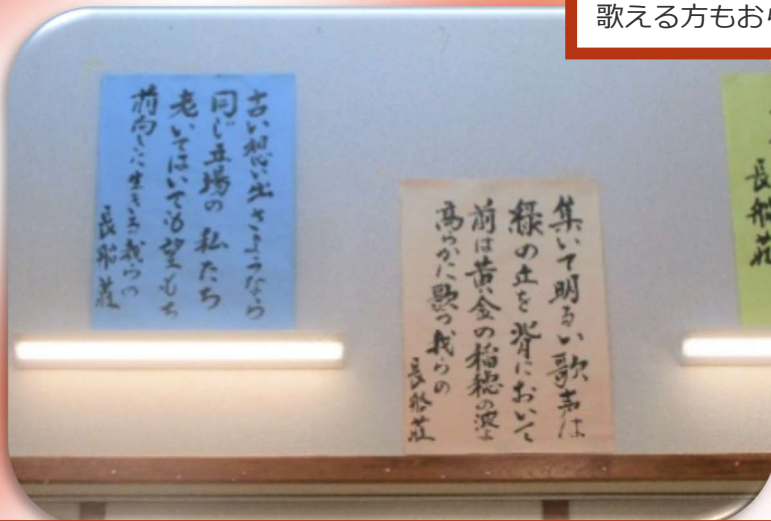 歌える方もお
古い想い出さようなら
同じ立場の 私たち
老いてはいても望もち
前向きに生きる我らの
長船荘
集いて明るい歌声は
緑の丘を背において
前は黄金の稲穂の波よ
高らかに歌う我らの
長船荘
長船荘